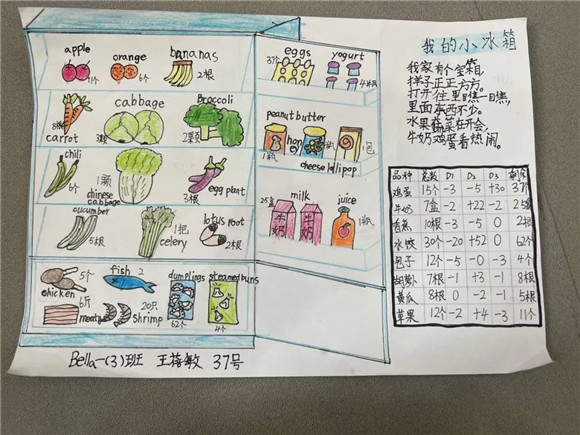 我的小冰箱
我家有个宝箱,
样子正正方方。
打开往里瞧一瞧,
里面东西不少。
水果蔬菜在开会,
牛奶鸡蛋看热闹。
apple
orange
bananas
6个
2根
cabbage
Broccoli
8根
carrot
3颗
2颗
chili
6个
1颗
chinese cabbage
3根
egg plant
cucumber
5根
1把
celery
lotus root
2根
chicken
5个
fish 2
dumplings
62个
steamed buns
4个
6斤
meat
20只
shrimp
eggs
37个
yogurt
peanut butter
1瓶
honey
cheese lollipop
1包
milk
25盒
牛奶
牛奶
juice
1瓶
品种 总数 D1 D2 D3 剩余
鸡蛋 15个 -3 -5 +30 37个
牛奶 7盒 -2 +22 -2 25盒
香蕉 10根 -3 -5 0 2根
水饺 30个 -20 +52 0 62个
包子 12个 -5 0 -3 4个
胡萝卜 7根 -1 +3 -1 8根
黄瓜 8根 0 -2 -1 5根
苹果 12个 -2 +4 -3 11个
Bella 一(3)班 王蓓敏 37号